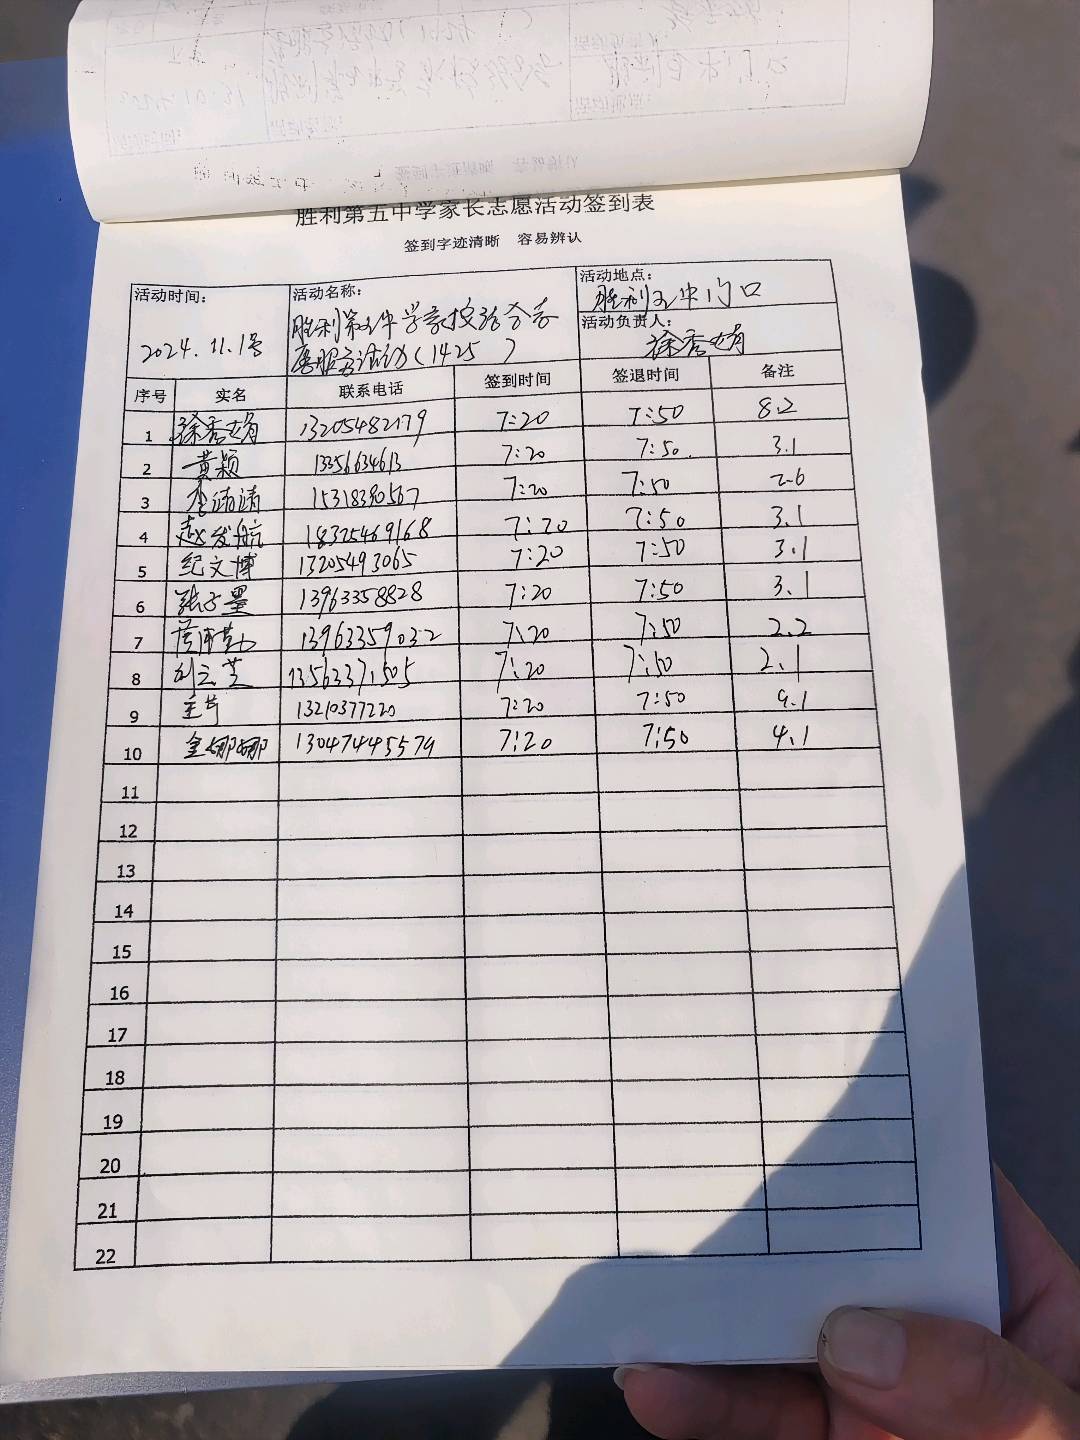 胜利第五中学家长志愿活动签到表
签到字迹清晰 容易辨认
活动时间：
2024.11.1号
活动名称：
胜利第五中学家校路
愿服务活动（1425 ）
活动地点：
胜利五中门口
活动负责人：
徐秀娟
序号 实名 联系电话 签到时间 签退时间 备注
1 徐秀娟 13205482179 7:20 7:50 8.2
2 黄颖 13356634613 7:20 7:50 3.1
3 李 15318390567 7:20 7:50 2.6
4 赵发航 18325469168 7:20 7:50 3.1
5 纪文博 13205493065 7:20 7:50 3.1
6 张子墨 13963358828 7:20 7:50 3.1
7 13963359032 7:20 7:50 2.2
8 刘云芝 13563371505 7:20 7:50 2.1
9 13210377220 7:20 7:50 9.1
10 金娜娜 13047445579 7:20 7:50 4.1
11
12
13
14
15
16
17
18
19
20
21
22